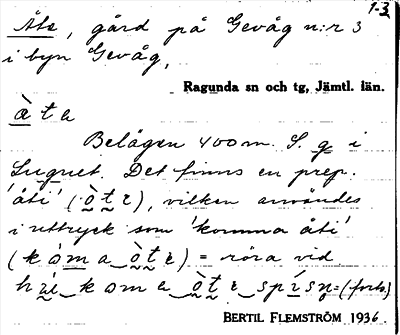 1-3
Åte, gård på Gevåg n:r 3
i byn Gevåg,
Ragunda sn och tg, Jämtl. län.
à t e
Belägen 400 m. S. g i
Lugnet. Det finns en prep.
'åti' (ò t ɛ), vilken användes
i uttryck som 'komma åti'
(k ó m a ò t ɛ) = röra vid
k o m a ò t ɛ s p í s = (forts.)
BERTIL FLEMSTRÖM 1936.